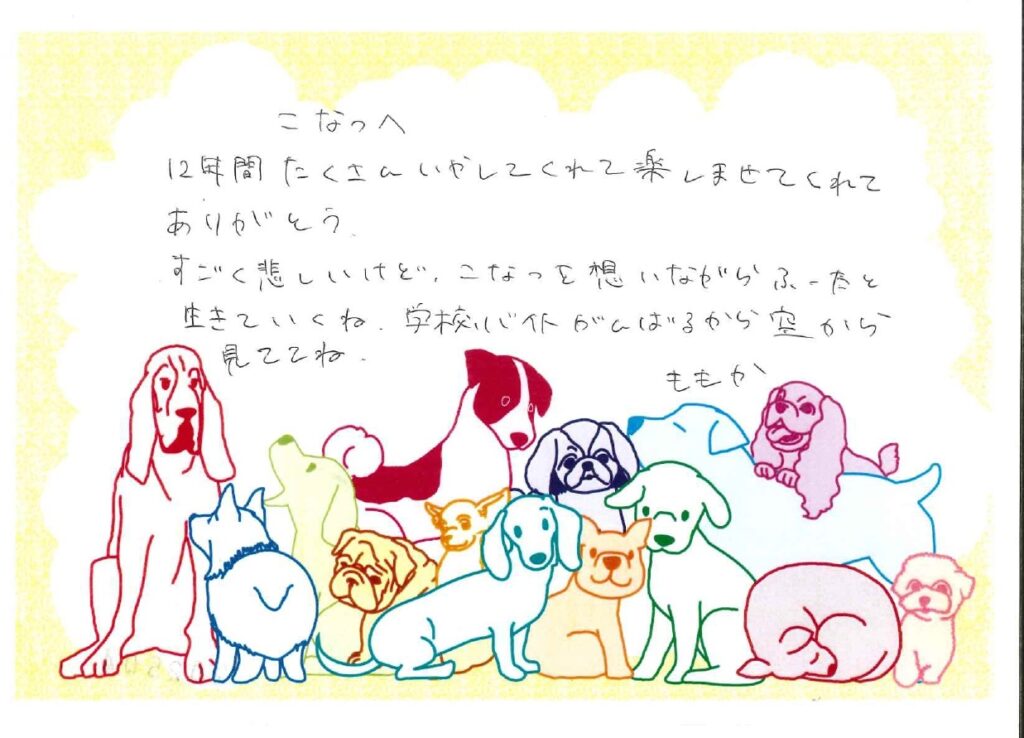 こなつへ
12年間たくさんいやしてくれて楽しませてくれて
ありがとう.
すごく悲しいけど、こなつを想いながらふーたと
生きていくね.学校もバイトもがんばるから空から
見ててね.
ももか